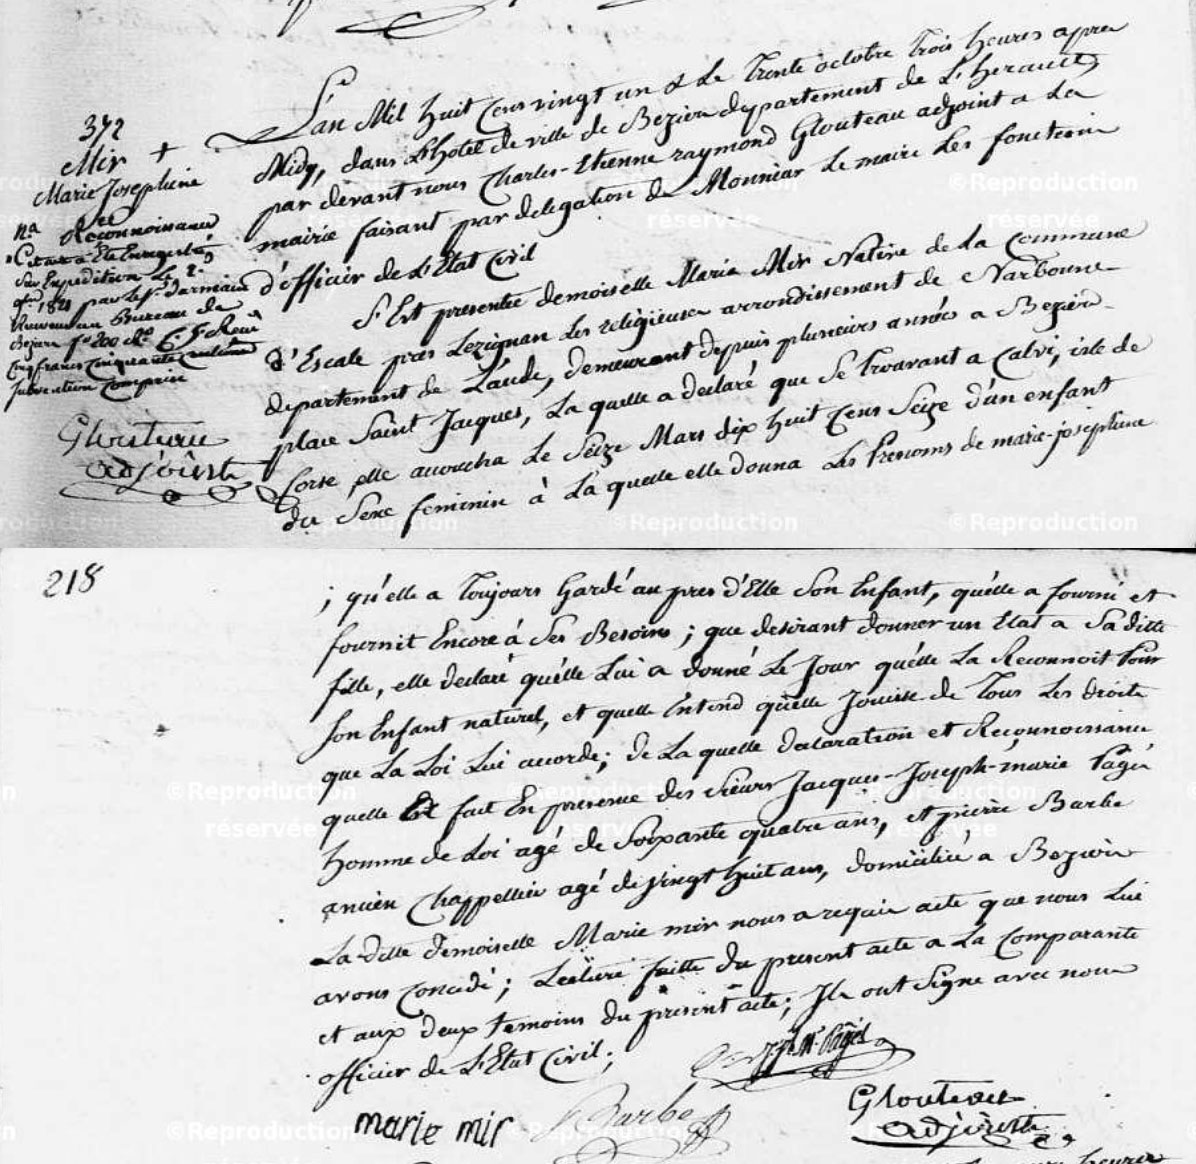 372
Mir +
Marie Josephine
Reconnoissance
n.a
Cet acte a Eté Enregistré
Sur Expedition Le 2.
1821 par Le Sr. Darmain
Receveur au Bureau de
Beziers fo 200
Cinq francs Cinquante Centimes
Subvention Comprise
Glouteau
adjoint
L'an Mil huit Cens vingt un & Le Trente octobre Trois heures apres
Midy, dans L'hotel de ville de Beziers departement de L'herault,
par devant nous Charles-Etienne raymond Glouteau adjoint a La
mairie faisant par delegation de Monsieur Le maire Les fonctions
d'officier de L'Etat Civil
S'Est presentée demoiselle Marie Mir Native de La Commune
d'Escale pres Lezignan Les religieuses arrondissement de Narbonne
departement de L'aude, demeurant depuis plusieurs années a Beziers
place Saint Jacques, La quelle a declaré que Se Trouvant a Calvi, isle de
Corse elle accoucha Le Seize Mars dix huit Cens Seize d'un enfant
du Sexe feminin à La quelle elle donna Les Prenoms de marie-josephine
218
; qu'elle a Toujours Gardé au pres d'Elle Son Enfant, qu'elle a fourni et
fournit Encore à Ses Besoins ; que desirant donner un Etat a Sa ditte
fille, elle declare qu'elle Lui a donné Le Jour qu'elle La Reconnoit Pour
Son Enfant naturel, et quelle Entend qu'elle Jouisse de Tous Les droits
que La Loi Lui accorde ; de La quelle declaration et Reconnoissance
quelle Et fait En presence des Sieurs Jacques-Joseph-marie Pagés
homme de Loi agé de Soixante quatre ans, et pierre Barbe
ancien Chappellier agé de vingt huit ans, domiciliés a Beziers
La ditte demoiselle Marie mir nous a requis acte que nous Lui
avons Concedé ; Lecture faitte du present acte a La Comparante
et aux deux temoins du present acte ; Ils ont Signe avec nous
officier de L'Etat Civil ;
Pagés
marie mir
Barbe
Glouteau
adjoint
©Reproduction réservée
©Reproduction réservée
©Reproduction
©Reproduction
©Reproduction réservée
©Reproduction réservée
©Reproduction réservée
©Reproduction
©Reproduction
©Reproduction